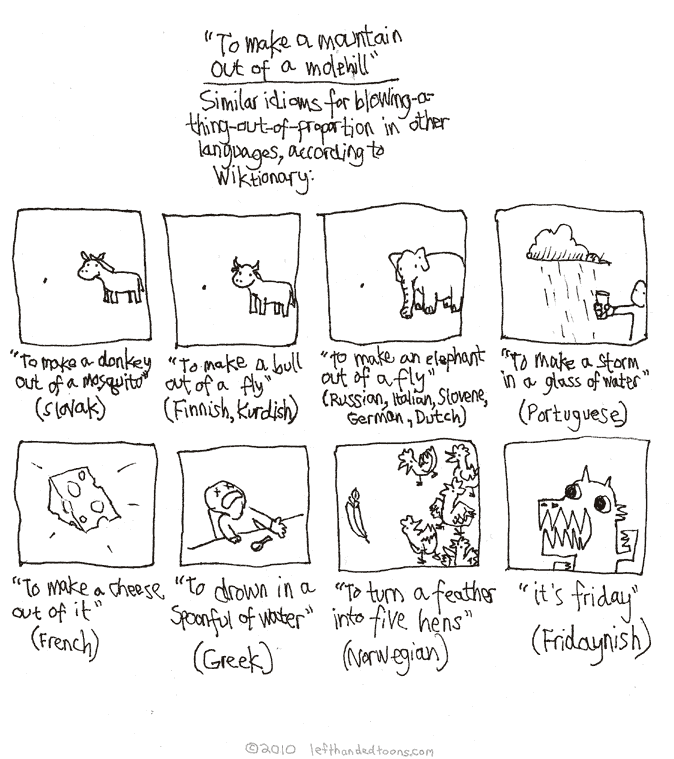 "To make a mountain
out of a molehill"
Similar idioms for blowing-a-
thing-out-of-proportion in other
languages, according to
Wiktionary:
"To make a donkey
out of a mosquito"
(Slovak)
"To make a bull
out of a fly"
(Finnish, Kurdish)
"to make an elephant
out of a fly"
(Russian, Italian, Slovene,
German, Dutch)
"To make a storm
in a glass of water"
(Portuguese)
"To make a cheese
out of it"
(French)
"to drown in a
spoonful of water"
(Greek)
"To turn a feather
into five hens"
(Norwegian)
"it's friday"
(Fridaynish)
©2010 lefthandedtoons.com